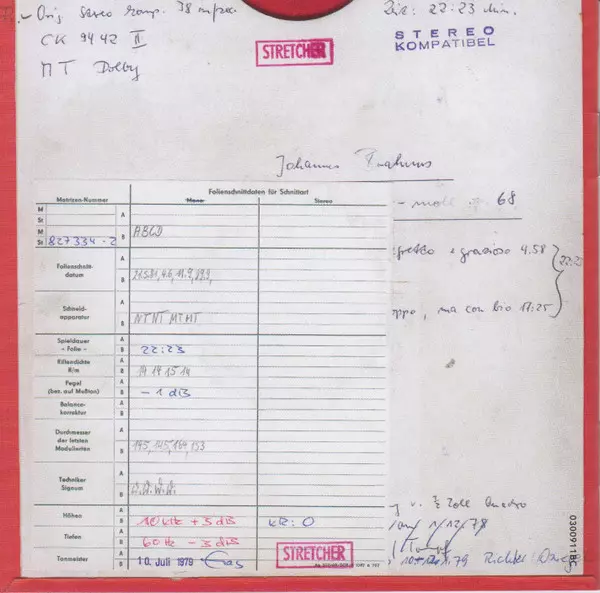 Orig Stereo Komp. 38 cm/sec
CK 9442 II
MT Dolby
Zeit: 22:23 min.
STEREO
KOMPATIBEL
STRETCHER
Johannes Brahms
- moll 68
grazioso 4.58
22:23
, ma con brio 17:25
Folienschnittdaten für Schnittart
Matrizen-Nummer Mono Stereo
M
St
A
M
St 827334-2
B ABCD
Folienschnitt-
datum
A
B
Schneid-
apparatur
A
B NT NT MT MT
Spieldauer
- Folie -
A
B 22:23
Rillendichte
R/m
A
B 14 14 15 14
Pegel
(bez. auf Mußton)
A
B - 1 dB
Balance-
korrektur
A
B
Durchmesser
der letzten
Modulierten
A
B 145, 145, 164, 153
Techniker
Signum
A
B
Höhen 10 kHz + 3 dB KR: 0
Tiefen 60 Hz - 3 dB
Tonmeister 10. Juli 1979
STRETCHER
v. ½ Zoll Quadro
1/12/78
79 Richter
0300911BC